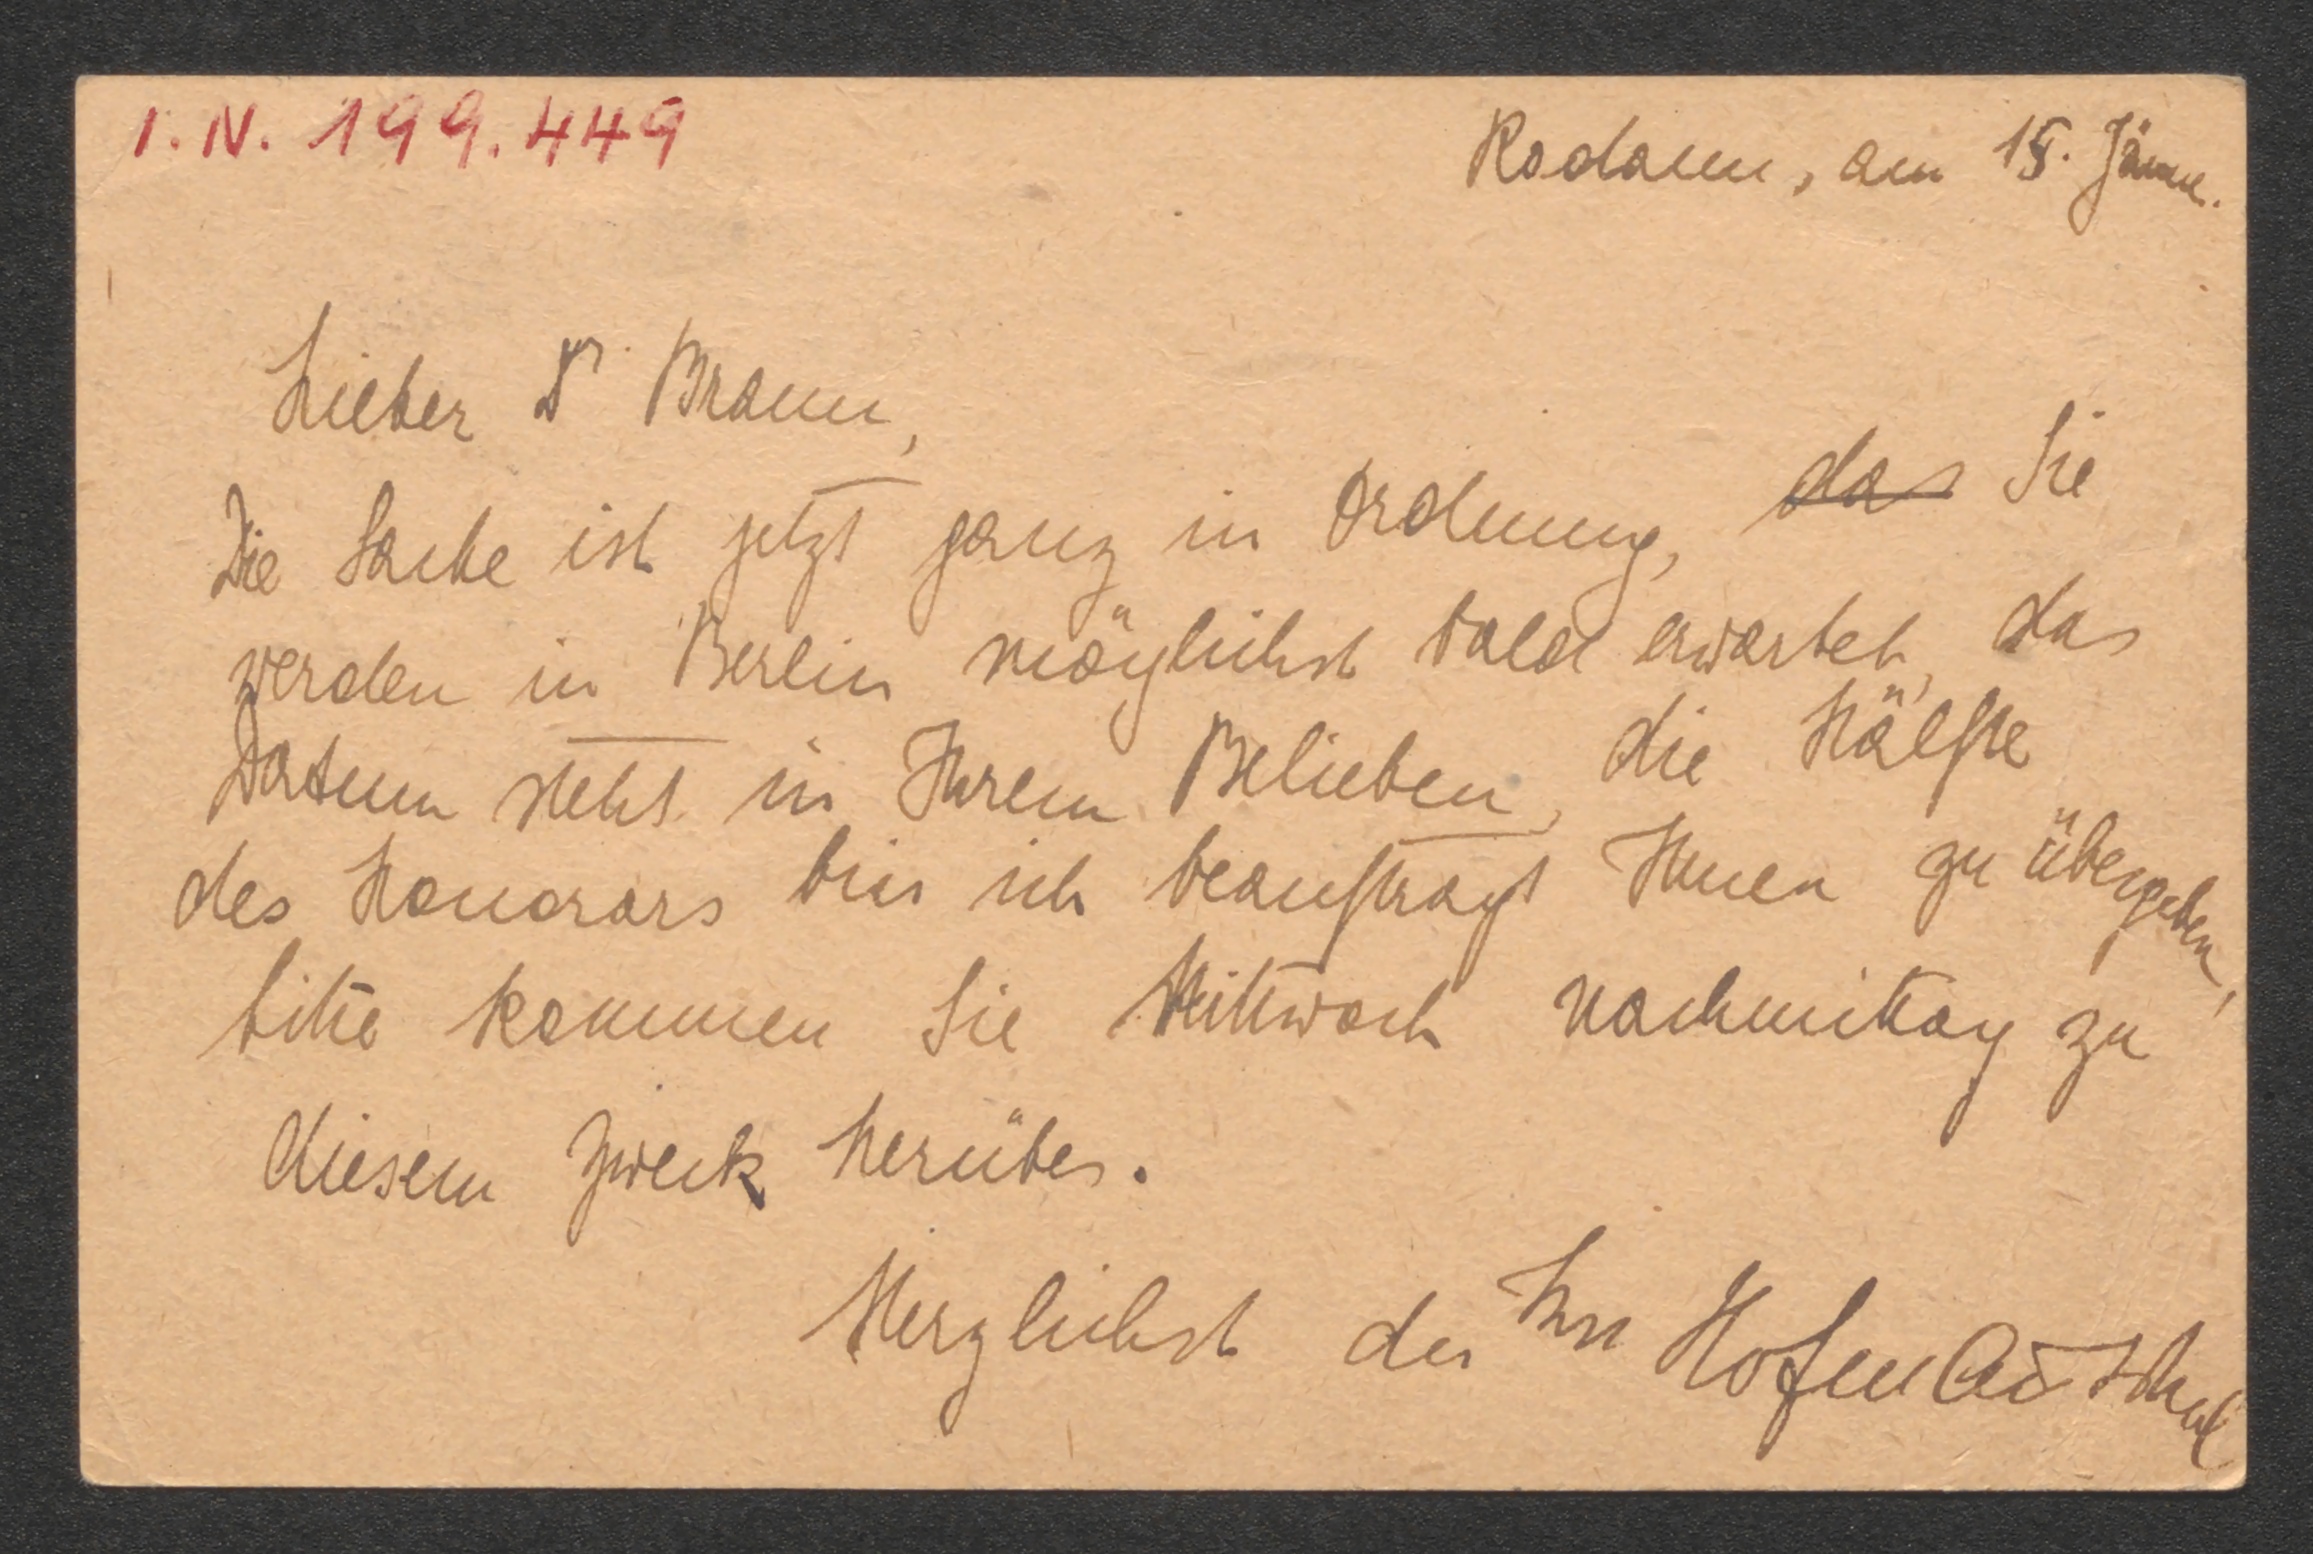 I.N. 199.449
Rodaun, am 15. Jänner.
Lieber Dr Braun,
Die Sache ist jetzt ganz in Ordnung, das Sie
werden in Berlin möglichst bald erwartet, das
Datum steht in Ihrem Belieben, die Hälfte
des Honorars bin ich beauftragt Ihnen zu übergeben,
bitte kommen Sie Mittwoch Nachmittag zu
diesem Zweck herüber.
Herzlichst der Ihre Hofmannsthal